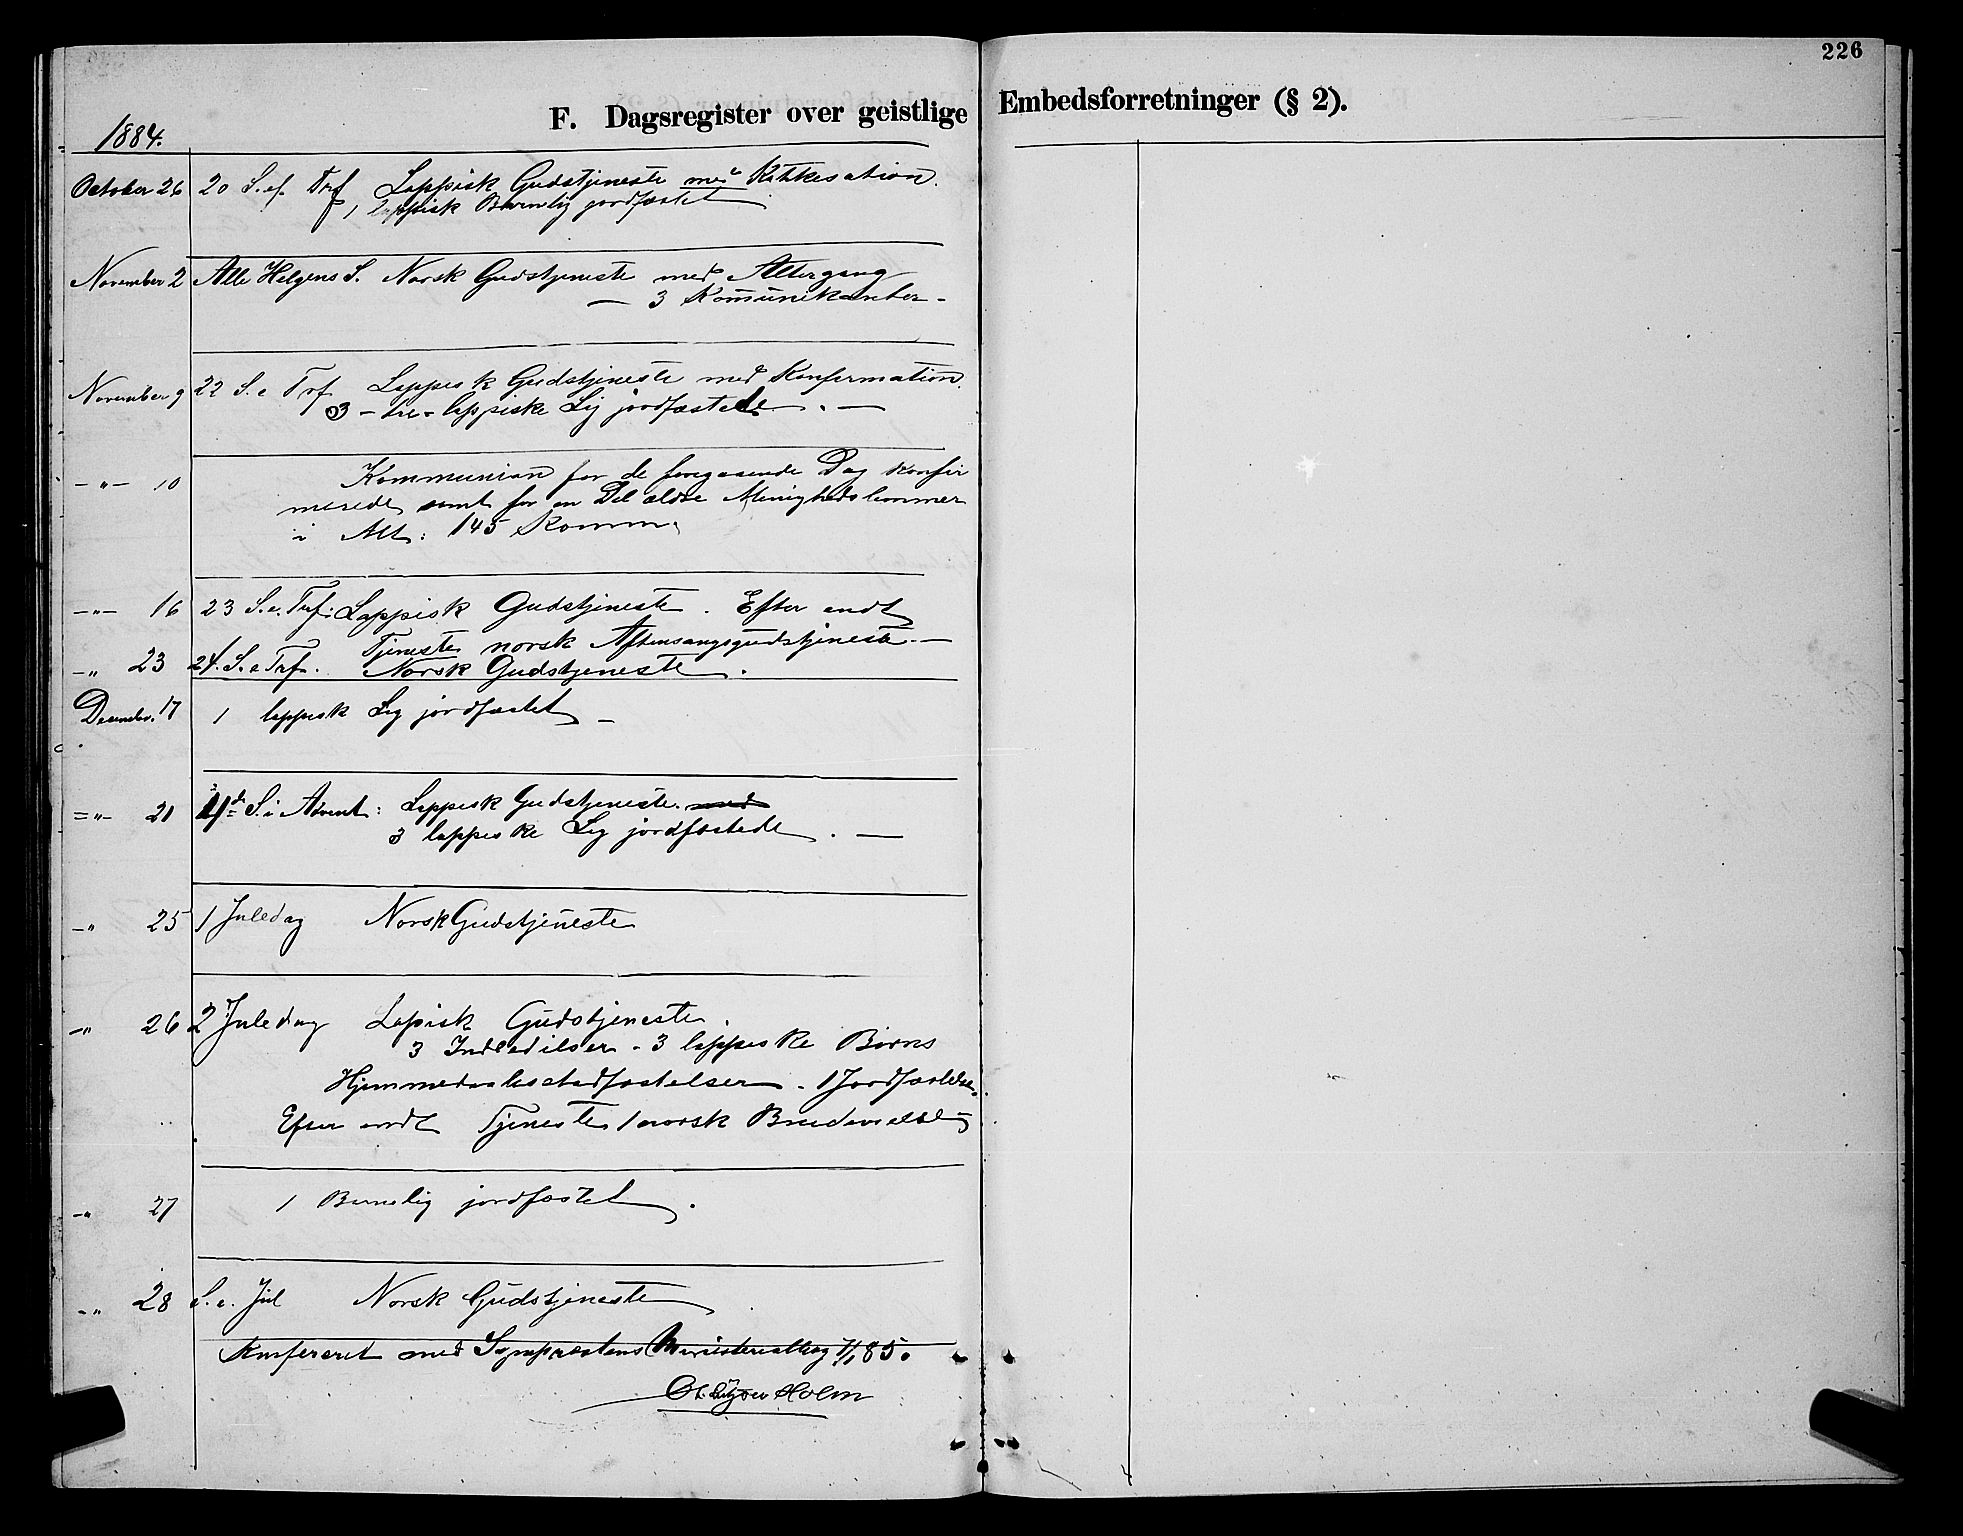 226
F. Dagsregister over geistlige Embedsforretninger (§ 2).
1884.
October 26 20 S. ef. Trf Lappisk Gudstjeneste med Katekisation.
1 lappisk Barnelig jordfæstet
November 2 Alle Helgens S. Norsk Gudstjeneste med Altergang
— 3 Kommunikanter –
November 9 22 S. e Trf Lappisk Gudstjeneste med Konfirmation.
3 – tre – lappiske Lig jordfæstede . —
–"– 10 Kommunion for de foregaaende Dag konfir
merede samt for en Del ældre Menighedslemmer
i Alt: 145 Komm.
–"– 16 23 S. e. Trf. Lappisk Gudstjeneste. Efter endt
Tjeneste norsk Aftensangsgudstjeneste. —
–" 23 24. S. e Trf. Norsk Gudstjeneste.
December 17 1 lappisk Lig jordfæstet –
="– 21 4de S. i Advent: Lappisk Gudstjeneste. med
3 lappiske Lig jordfæstede . —
–" 25 1 Juledag Norsk Gudstjeneste
–" 26 2 Juledag Lapisk Gudstjeneste.
3 Indledelser – 3 lappiske Børns
Hjemmedaabsstadfæstelser – 1 Jordfæstelse.
Efter endt Tjeneste 1 norsk Brudevielse
–" 27 1 Barnelig jordfæstet.
–" 28 S. e. Jul Norsk Gudstjeneste
Konfereret med Sognepræstens Ministerialbog 7/1 85.
Holm